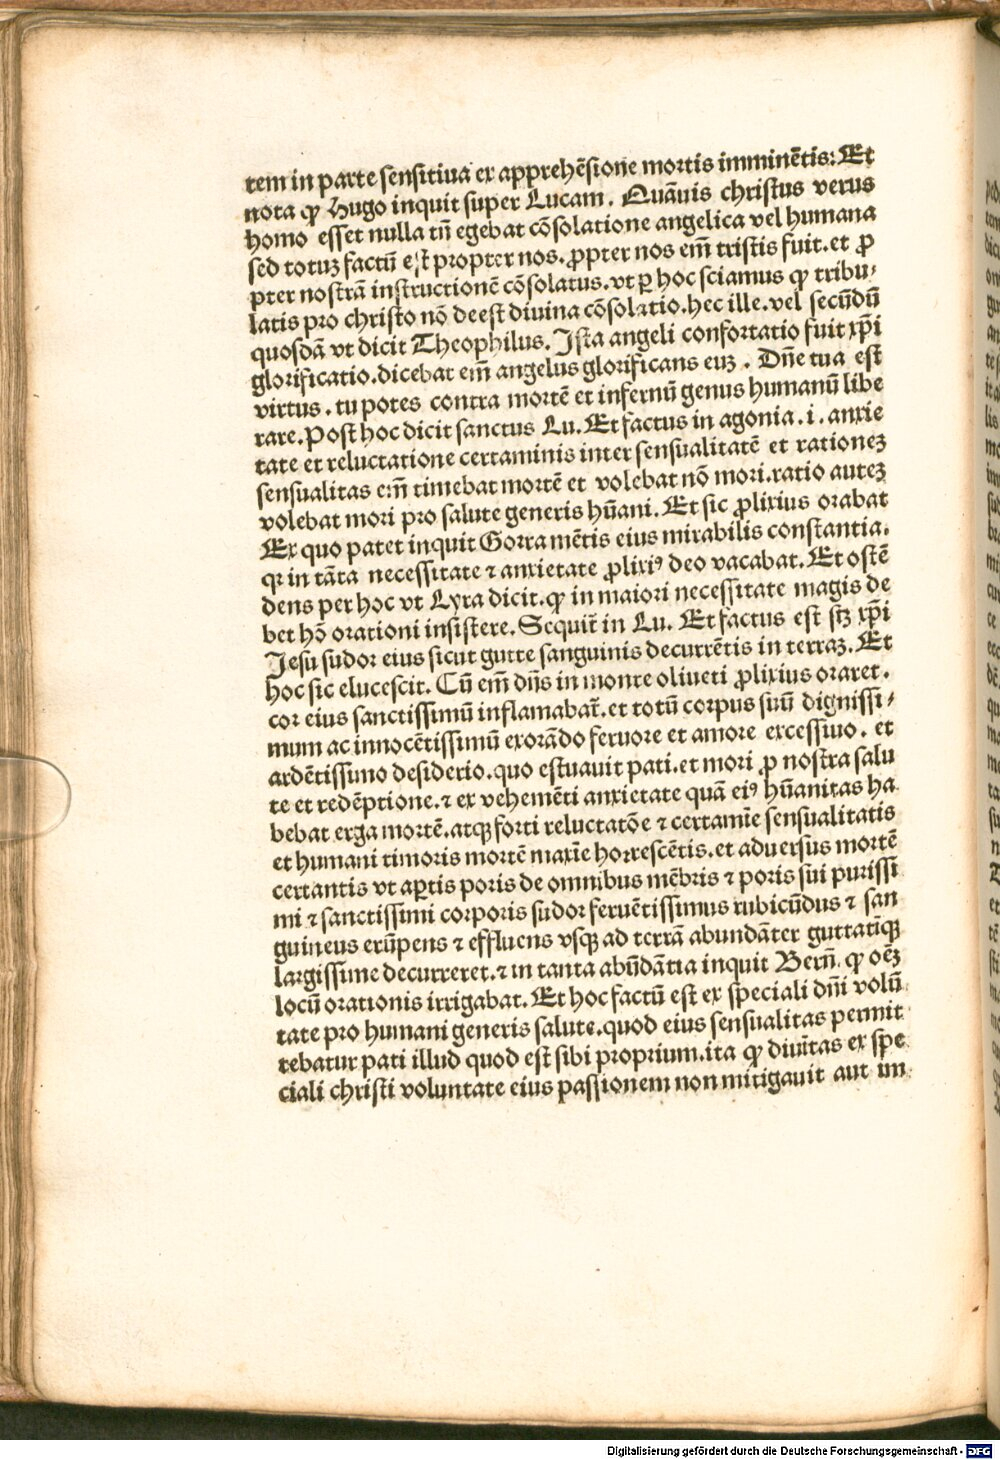 tem in parte sensitiua ex apprehēsione mortis imminētis: Et
nota ꝙ Hugo inquit super Lucam. Quāuis christus verus
homo esset nulla tn̄ egebat cōsolatione angelica vel humana
sed totuꝫ factū est propter nos. ꝓpter nos em̄ tristis fuit. et ꝓ
pter nostrā instructionē cōsolatus. vt ꝑ hoc sciamus ꝙ tribu⸗
latis pro christo nō deest diuina cōsolatio. hec ille. vel secūdū
quosdā vt dicit Theophilus. Ista angeli confortatio fuit xp̄i
glorificatio. dicebat em̄ angelus glorificans euꝫ. Dn̄e tua est
virtus. tu potes contra mortē et infernū genus humanū libe
rare. Post hoc dicit sanctus Lu. Et factus in agonia. i. anxie
tate et reluctatione certaminis inter sensualitatē et rationeꝫ
sensualitas em̄ timebat mortē et volebat nō mori. ratio auteꝫ
volebat mori pro salute generis hūani. Et sic ꝓlixius orabat
Ex quo patet inquit Gorra mētis eius mirabilis constantia.
qꝛ in tāta necessitate ⁊ anxietate ꝓlixiꝰ deo vacabat. Et ostē
dens per hoc vt Lyra dicit. ꝙ in maiori necessitate magis de
bet hō orationi insistere. Sequit̄ in Lu. Et factus est sꝫ xp̄i
Jesu sudor eius sicut gutte sanguinis decurrētis in terraꝫ. Et
hoc sic elucescit. Cū em̄ dn̄s in monte oliueti ꝓlixius oraret.
cor eius sanctissimū inflamabat̄. et totū corpus suū dignissi⸗
mum ac innocētissimū exorādo feruore et amore excessiuo. et
ardētissimo desiderio. quo estuauit pati. et mori ꝓ nostra salu
te et redēptione. ⁊ ex vehemēti anxietate quā eiꝰ hūanitas ha
bebat erga mortē. atqꝫ forti reluctatōe ⁊ certamīe sensualitatis
et humani timoris mortē maxīe horrescētis. et aduersus mortē
certantis vt aꝑtis poris de omnibus mēbris ⁊ poris sui purissi
mi ⁊ sanctissimi corporis sudor feruētissimus rubicūdus ⁊ san
guineus erūpens ⁊ effluens vsqꝫ ad terrā abundāter guttatīqꝫ
largissime decurreret. ⁊ in tanta abūdātia inquit Bern̄. ꝙ oēꝫ
locū orationis irrigabat. Et hoc factū est ex speciali dn̄i volū
tate pro humani generis salute. quod eius sensualitas permit
tebatur pati illud quod est sibi proprium. ita ꝙ diuītas ex spe
ciali christi voluntate eius passionem non mitigauit aut im
Digitalisierung gefördert durch die Deutsche Forschungsgemeinschaft - DFG